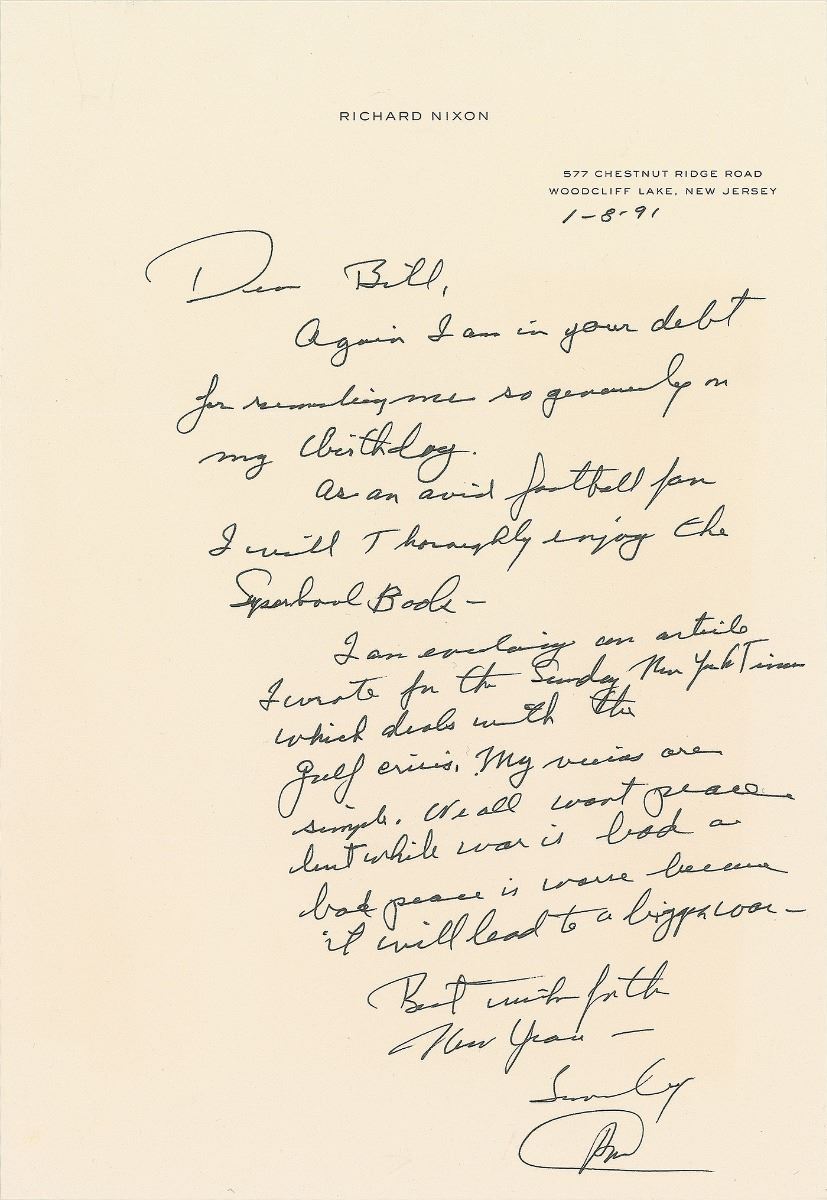 RICHARD NIXON
577 CHESTNUT RIDGE ROAD
WOODCLIFF LAKE, NEW JERSEY
1-8-91
Dear Bill,
Again I am in your debt
for remembering me so generously on
my birthday.
As an avid football fan
I will thoroughly enjoy the
Superbowl Book —
I am enclosing an article
I wrote for the Sunday New York Times
which deals with the
Gulf crisis. My views are
simple. We all want peace
but while war is bad a
bad peace is worse because
it will lead to a bigger war —
Best wishes for the
New Year —
Sincerely
RN